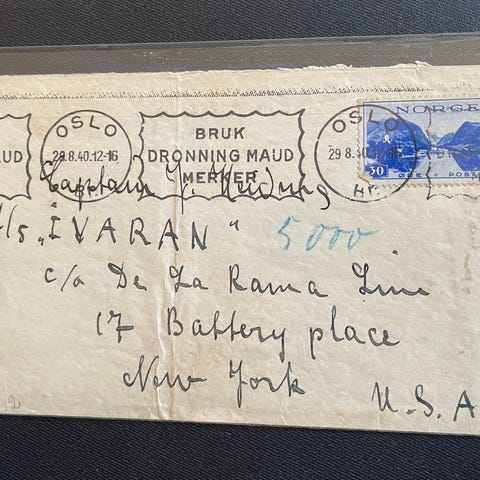 OSLO
29.8.40.12-16
BRUK
DRONNING MAUD
MERKER
OSLO
29.8.40.12-16
Hr.
NORGE
30
ØRE POST
UD
Captain
M/S „IVARAN"
5000
c/o De La Rama Line
17 Battery place
New York
U.S.A